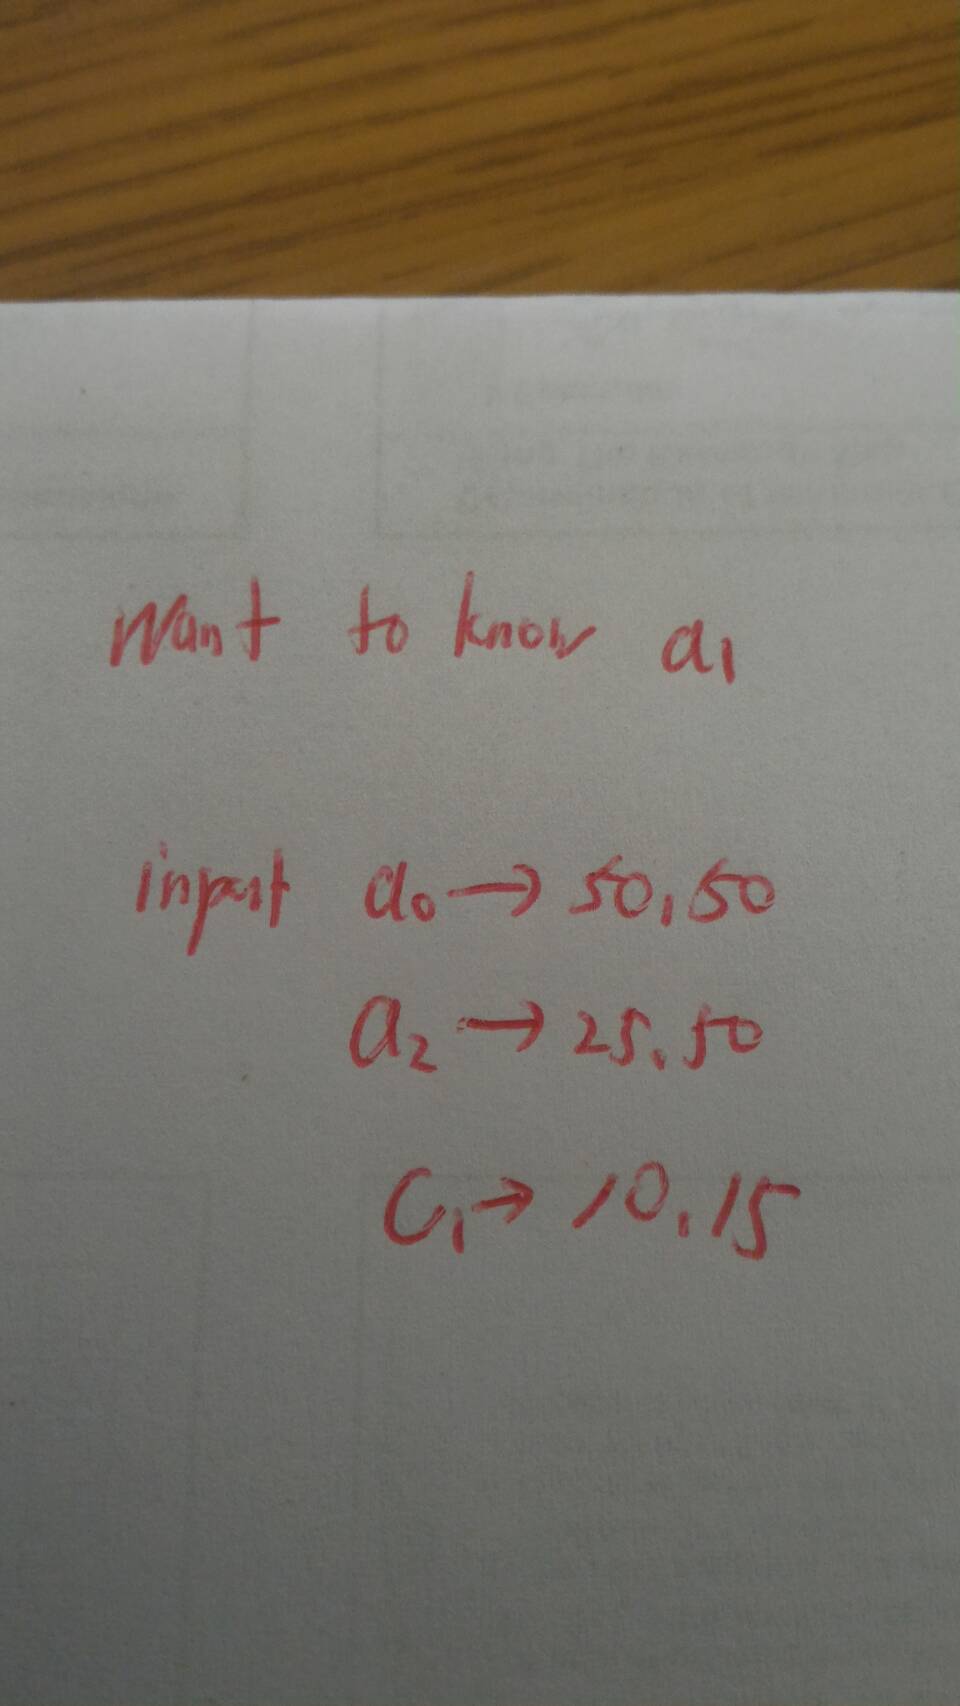 Want to know a₁
input a₀→50.50
a₂→25.50
C₁→10.15